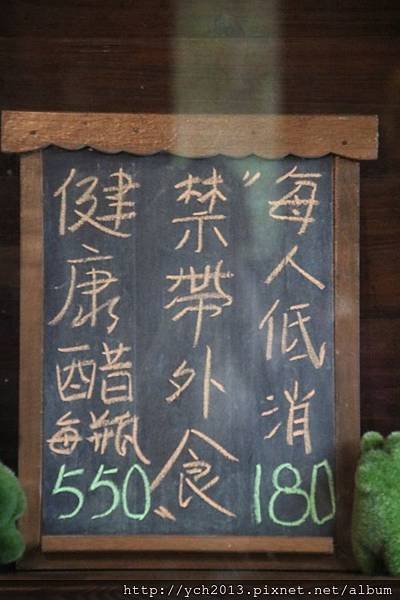 每人低消180
〝禁帶外食〞
健康醋每瓶550
http://ych2013.pixnet.net/album